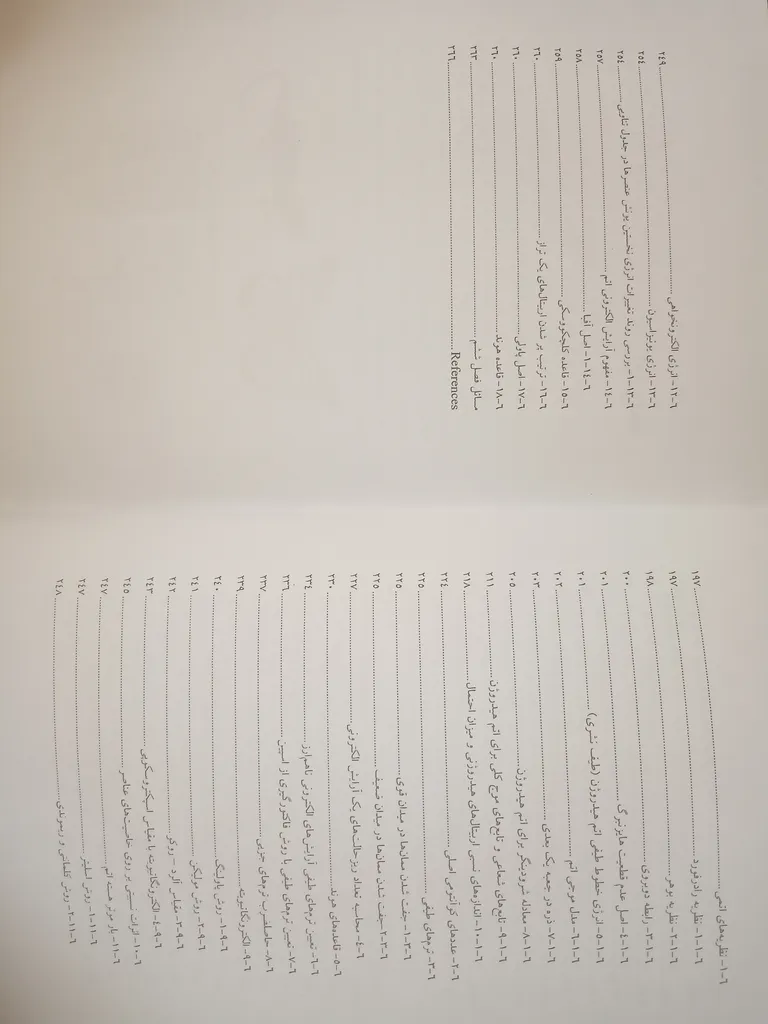 ٦-۱- نظریه‌های اتمی ........ ۱۹۷
٦-۱-۱- نظریه رادرفورد ........ ۱۹۷
٦-۱-۲- نظریه بوهر ........ ۱۹۸
٦-۱-۳- رابطه دوبروی ........ ۲۰۰
٦-۱-٤- اصل عدم قطعیت هایزنبرگ ........ ۲۰۱
٦-۱-٥- انرژی خطوط طیفی اتم هیدروژن (طیف نشری) ........ ۲۰۱
٦-۱-٦- مدل موجی اتم ........ ۲۰۲
٦-۱-۷- ذره در جعبه یک بعدی ........ ۲۰۳
٦-۱-۸- معادله شرودینگر برای اتم هیدروژن ........ ۲۰٥
٦-۱-۹- تابع‌های شعاعی و تابع‌های موج کلی برای اتم هیدروژن ........ ۲۱۱
٦-۱-۱۰- اندازه‌های نسبی اربیتال‌های هیدروژنی و میزان احتمال ........ ۲۱۸
٦-۲- عددهای کوانتومی اصلی ........ ۲۲٤
٦-۳- ترم‌های طیفی ........ ۲۲٥
٦-۳-۱- جفت شدن ممان‌ها در میدان قوی ........ ۲۲٥
٦-۳-۲- جفت شدن ممان‌ها در میدان ضعیف ........ ۲۲٥
٦-٤- محاسبه تعداد ریزحالت‌های یک آرایش الکترونی ........ ۲۲۷
٦-٥- قاعده‌های هوند ........ ۲۳۰
٦-٦- تعیین ترم‌های طیفی آرایش‌های الکترونی ناهم‌ارز ........ ۲۳٤
٦-۷- تعیین ترم‌های طیفی با روش فاکتورگیری از اسپین ........ ۲۳٦
٦-۸- حاصلضرب ترم‌های جزیی ........ ۲۳۷
٦-۹- الکترونگاتیویته ........ ۲۳۹
٦-۹-۱- روش پاولینگ ........ ۲٤۰
٦-۹-۲- روش مولیکن ........ ۲٤۱
٦-۹-۳- مقیاس آلرد - روکو ........ ۲٤۲
٦-۹-٤- الکترونگاتیویته با مقیاس اسپکتروسکوپی ........ ۲٤۳
٦-۱۰- اثرات نسبیتی بر روی خاصیت‌های عناصر ........ ۲٤٥
٦-۱۱- بار موثر هسته اتم ........ ۲٤۷
٦-۱۱-۱- روش اسلیتر ........ ۲٤۷
٦-۱۱-۲- روش کلمانتی و ریموندی ........ ۲٤۸
٦-۱۲- انرژی الکترونخواهی ........ ۲٤۹
٦-۱۳- انرژی یونیزاسیون ........ ۲٥٤
٦-۱۳-۱- بررسی روند تغییرات انرژی نخستین یونش عنصرها در جدول تناوبی ........ ۲٥٤
٦-۱٤- مفهوم آرایش الکترونی اتم ........ ۲٥۷
٦-۱٤-۱- اصل آفبا ........ ۲٥۸
٦-۱٥- قاعده کلچکووسکی ........ ۲٥۹
٦-۱٦- ترتیب پر شدن اربیتال‌های یک تراز ........ ۲٦۰
٦-۱۷- اصل پاولی ........ ۲٦۰
٦-۱۸- قاعده هوند ........ ۲٦۰
مسائل فصل ششم ........ ۲٦۳
References ........ ۲٦٦